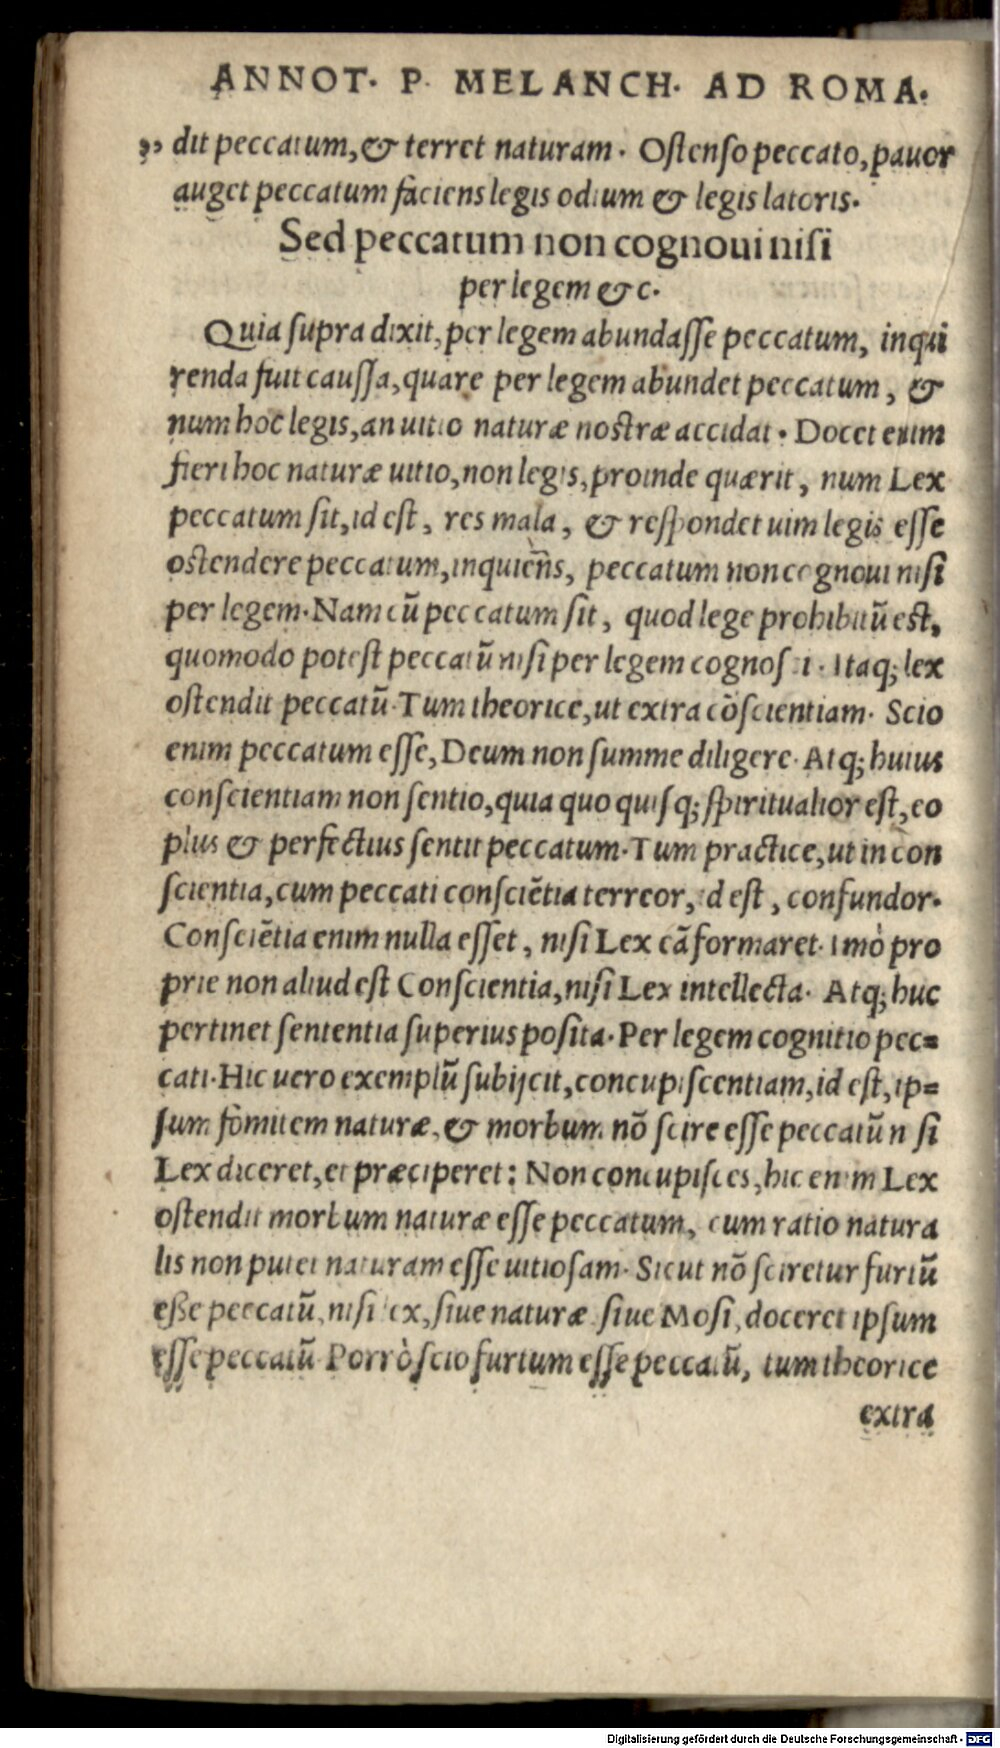 ANNOT. P. MELANCH. AD ROMA.
„ dit peccatum, & terret naturam. Ostenso peccato, pauor
auget peccatum faciens legis odium & legis latoris.
Sed peccatum non cognoui nisi
per legem &c.
Quia supra dixit, per legem abundasse peccatum, inqui
renda fuit caussa, quare per legem abundet peccatum, &
num hoc legis, an uitio naturæ nostræ accidat. Docet enim
fieri hoc naturæ uitio, non legis, proinde quærit, num Lex
peccatum sit, id est, res mala, & respondet uim legis esse
ostendere peccatum, inquiēns, peccatum non cognoui nisi
per legem. Nam cū peccatum sit, quod lege prohibitū est,
quomodo potest peccatū nisi per legem cognosci. Itaq; lex
ostendit peccatū. Tum theorice, ut extra cōscientiam. Scio
enim peccatum esse, Deum non summe diligere. Atq; huius
conscientiam non sentio, quia quo quisq; spiritualior est, eo
plus & perfectius sentit peccatum. Tum practice, ut in con
scientia, cum peccati consciētia terreor, id est, confundor.
Consciētia enim nulla esset, nisi Lex eā formaret. Imò pro
prie non aliud est Conscientia, nisi Lex intellecta. Atq; huc
pertinet sententia superius posita. Per legem cognitio pec=
cati. Hic uero exemplū subijcit, concupiscentiam, id est, ip=
sum fomitem naturæ, & morbum nō scire esse peccatū nisi
Lex diceret, et præciperet: Non concupisces, hic enim Lex
ostendit morbum naturæ esse peccatum, cum ratio natura
lis non putet naturam esse uitiosam. Sicut nō sciretur furtū
eße peccatū, nisi lex, siue naturæ siue Mosi, doceret ipsum
esse peccatū. Porrò scio furtum esse peccatū, tum theorice
extra
Digitalisierung gefördert durch die Deutsche Forschungsgemeinschaft - DFG